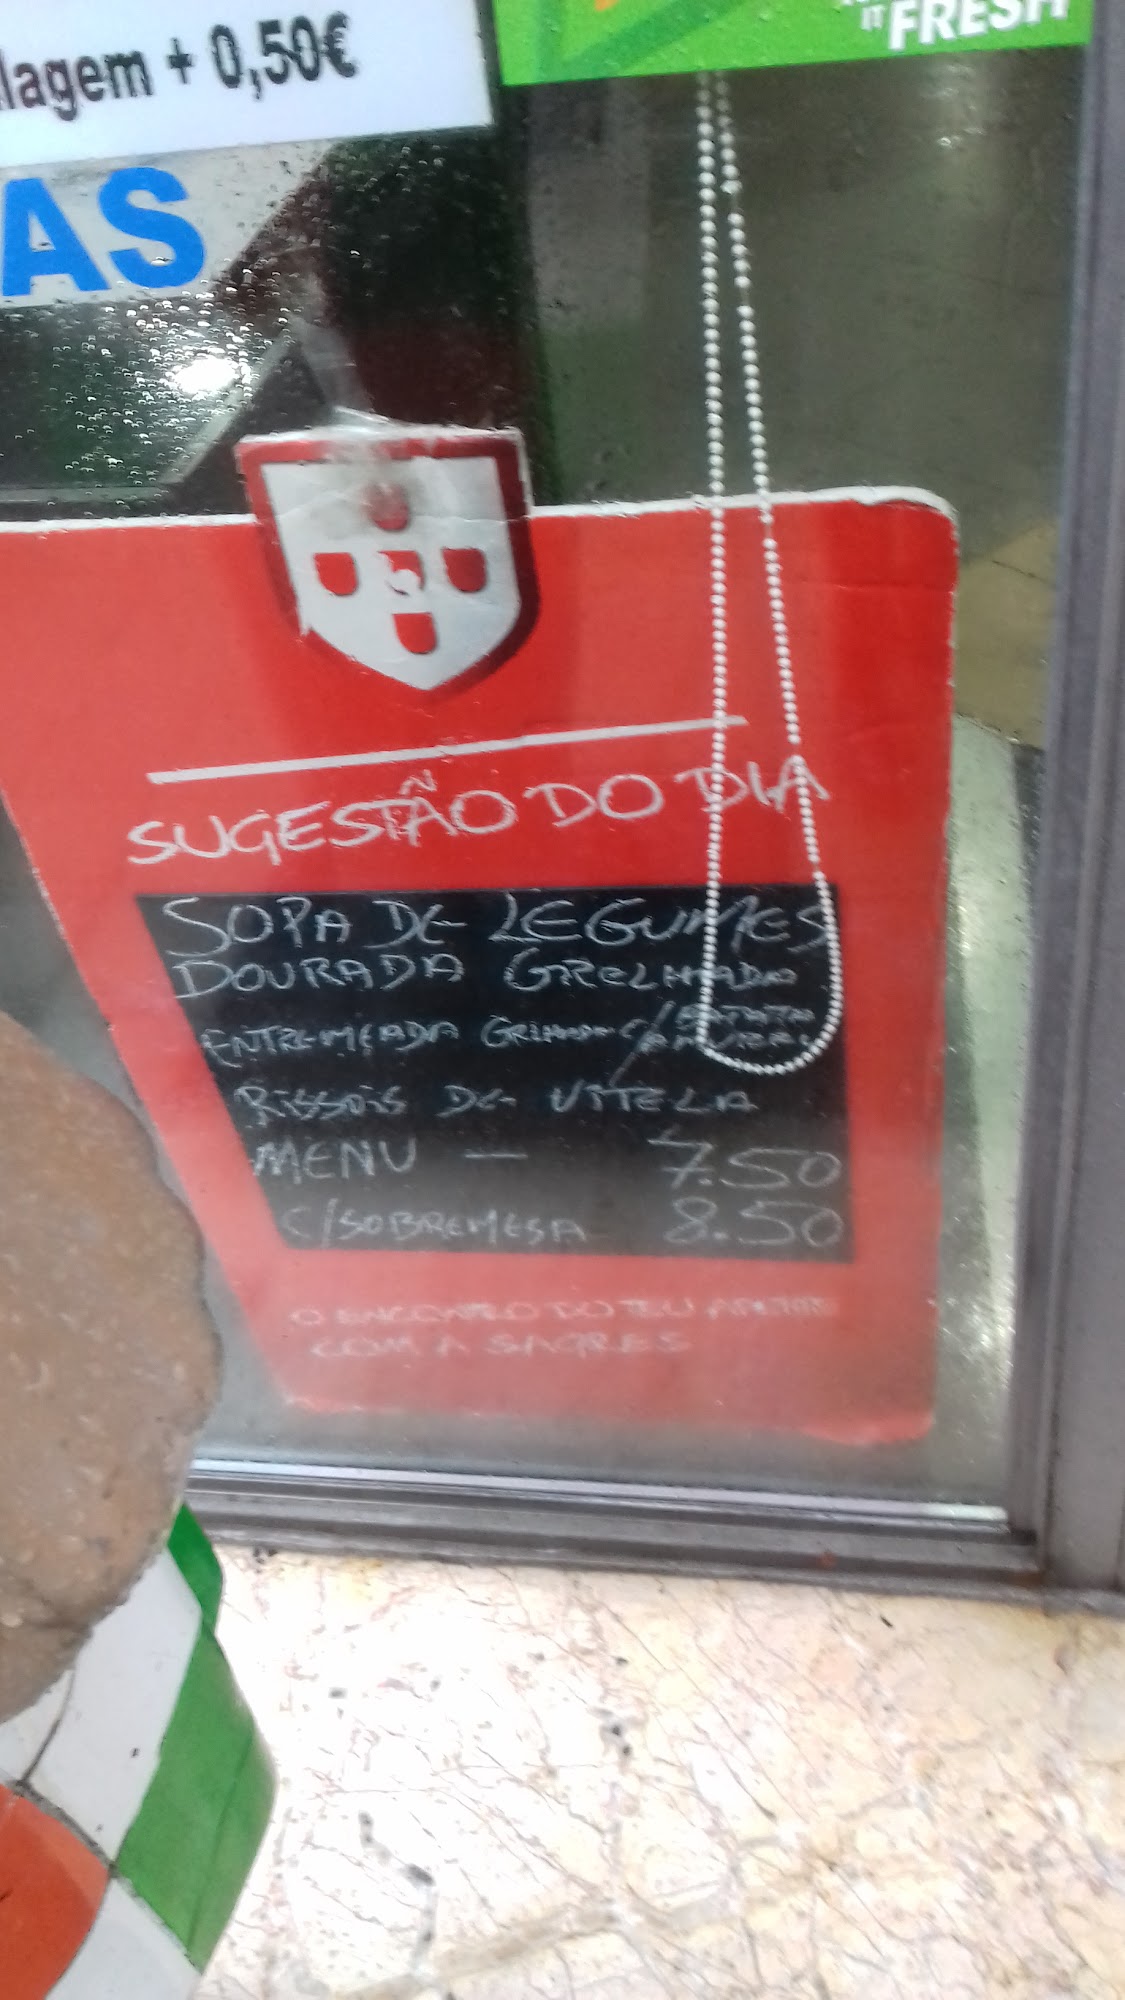 lagem + 0,50€
IT FRESH
AS
SUGESTÃO DO DIA
SOPA DE LEGUMES
DOURADA GRELHADA
ENTREMEADA GRELHADA C/
RISSOIS DE VITELA
MENU — 7.50
C/SOBREMESA 8.50
O ENCONTRO DO TEU
COM A SAGRES